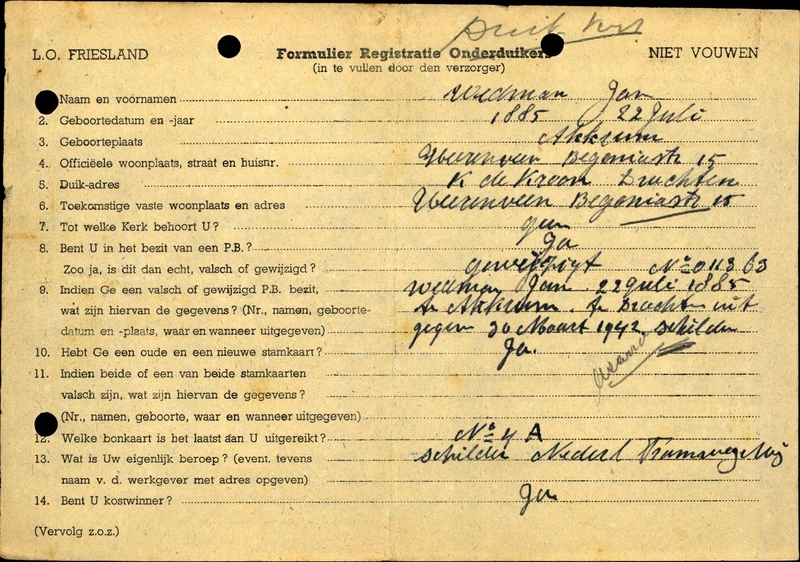 L.O. FRIESLAND Formulier Registratie Onderduikers NIET VOUWEN
(in te vullen door den verzorger)
Naam en voornamen Wedman Jan
2. Geboortedatum en -jaar 1885 22 Juli
3. Geboorteplaats Akkrum
4. Officiëele woonplaats, straat en huisnr. Heerenveen Begoniastr 15
5. Duik-adres K de Kroon Drachten
6. Toekomstige vaste woonplaats en adres Heerenveen Begoniastr 15
7. Tot welke Kerk behoort U? geen
8. Bent U in het bezit van een P.B.? Ja
Zoo ja, is dit dan echt, valsch of gewijzigd? gewijzigt No 011363
9. Indien Ge een valsch of gewijzigd P.B. bezit, Wedman Jan 22 Juli 1885
wat zijn hiervan de gegevens? (Nr., namen, geboorte- te Akkrum. te Drachten uit
datum en -plaats, waar en wanneer uitgegeven) gegeven 30 Maart 1942 schilder
10. Hebt Ge een oude en een nieuwe stamkaart? Ja.
11. Indien beide of een van beide stamkaarten
valsch zijn, wat zijn hiervan de gegevens?
(Nr., namen, geboorte, waar en wanneer uitgegeven)
12. Welke bonkaart is het laatst aan U uitgereikt? No 4 A
13. Wat is Uw eigenlijk beroep? (event. tevens schilder Nederl Tramweg Mij
naam v. d. werkgever met adres opgeven)
14. Bent U kostwinner? Ja
(Vervolg z.o.z.)